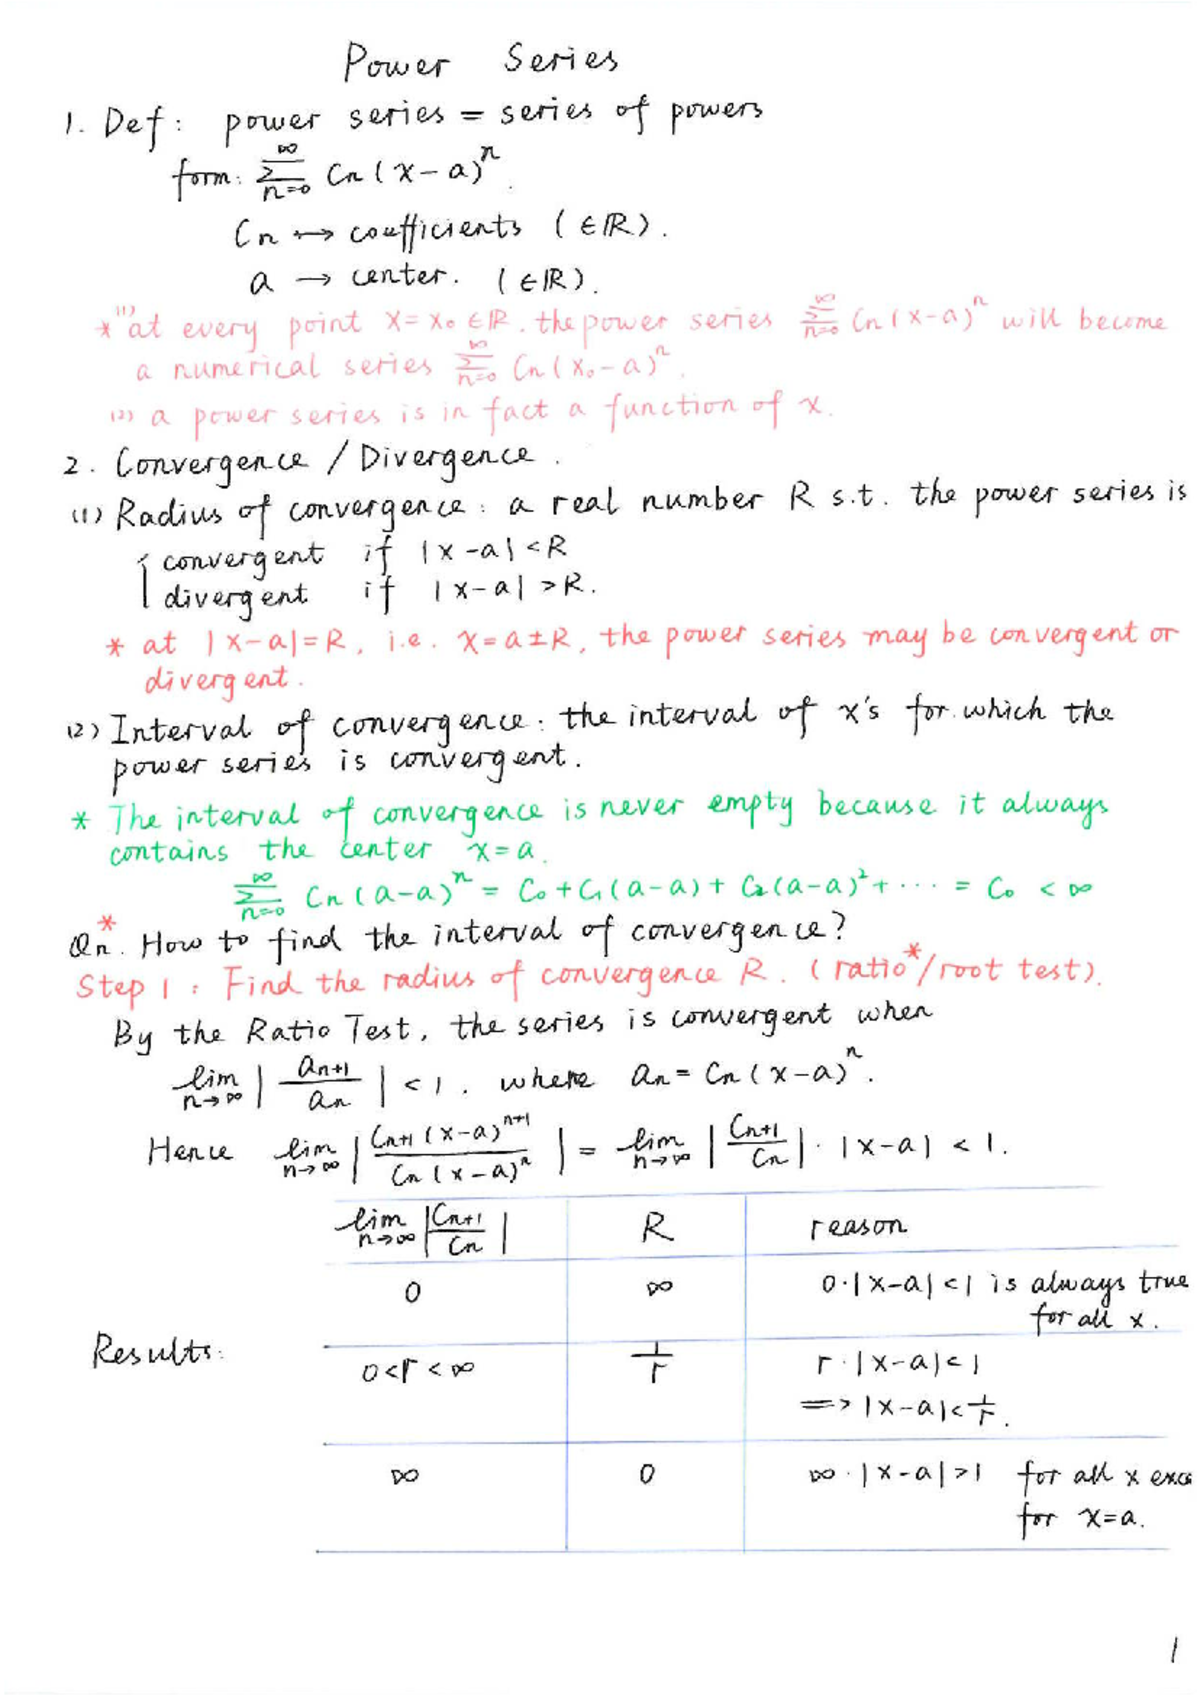 Power Series
1. Def: power series = series of powers
form: ∑_{n=0}^{∞} Cn (x-a)^n.
Cn ↔ coefficients (∈ℝ).
a → center. (∈ℝ).
* (1) at every point x=x₀ ∈ℝ, the power series ∑_{n=0}^{∞} Cn (x-a)^n will become
a numerical series ∑_{n=0}^{∞} Cn (x₀-a)^n.
(2) a power series is in fact a function of x.
2. Convergence / Divergence.
(1) Radius of convergence: a real number R s.t. the power series is
{ convergent if |x-a| < R
divergent if |x-a| > R.
* at |x-a| = R, i.e. x=a±R, the power series may be convergent or
divergent.
(2) Interval of convergence: the interval of x's for which the
power series is convergent.
* The interval of convergence is never empty because it always
contains the center x=a.
∑_{n=0}^{∞} Cn (a-a)^n = C₀+C₁(a-a)+C₂(a-a)²+··· = C₀ < ∞
Qn.* How to find the interval of convergence?
Step 1: Find the radius of convergence R. (ratio*/root test).
By the Ratio Test, the series is convergent when
lim_{n→∞} |a_{n+1}/a_n| < 1, where an = Cn (x-a)^n.
Hence lim_{n→∞} |C_{n+1} (x-a)^{n+1} / Cn (x-a)^n| = lim_{n→∞} |C_{n+1}/Cn| · |x-a| < 1.
lim_{n→∞} |C_{n+1}/Cn| R reason
0 ∞ 0·|x-a|<1 is always true
for all x.
Results:
0<r<∞ 1/r r·|x-a|<1
=> |x-a|<1/r.
∞ 0 ∞·|x-a|>1 for all x exce
for x=a.
1